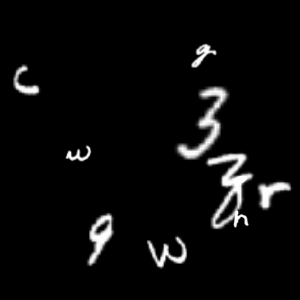 g
c
3
w
3 r
h
9 w